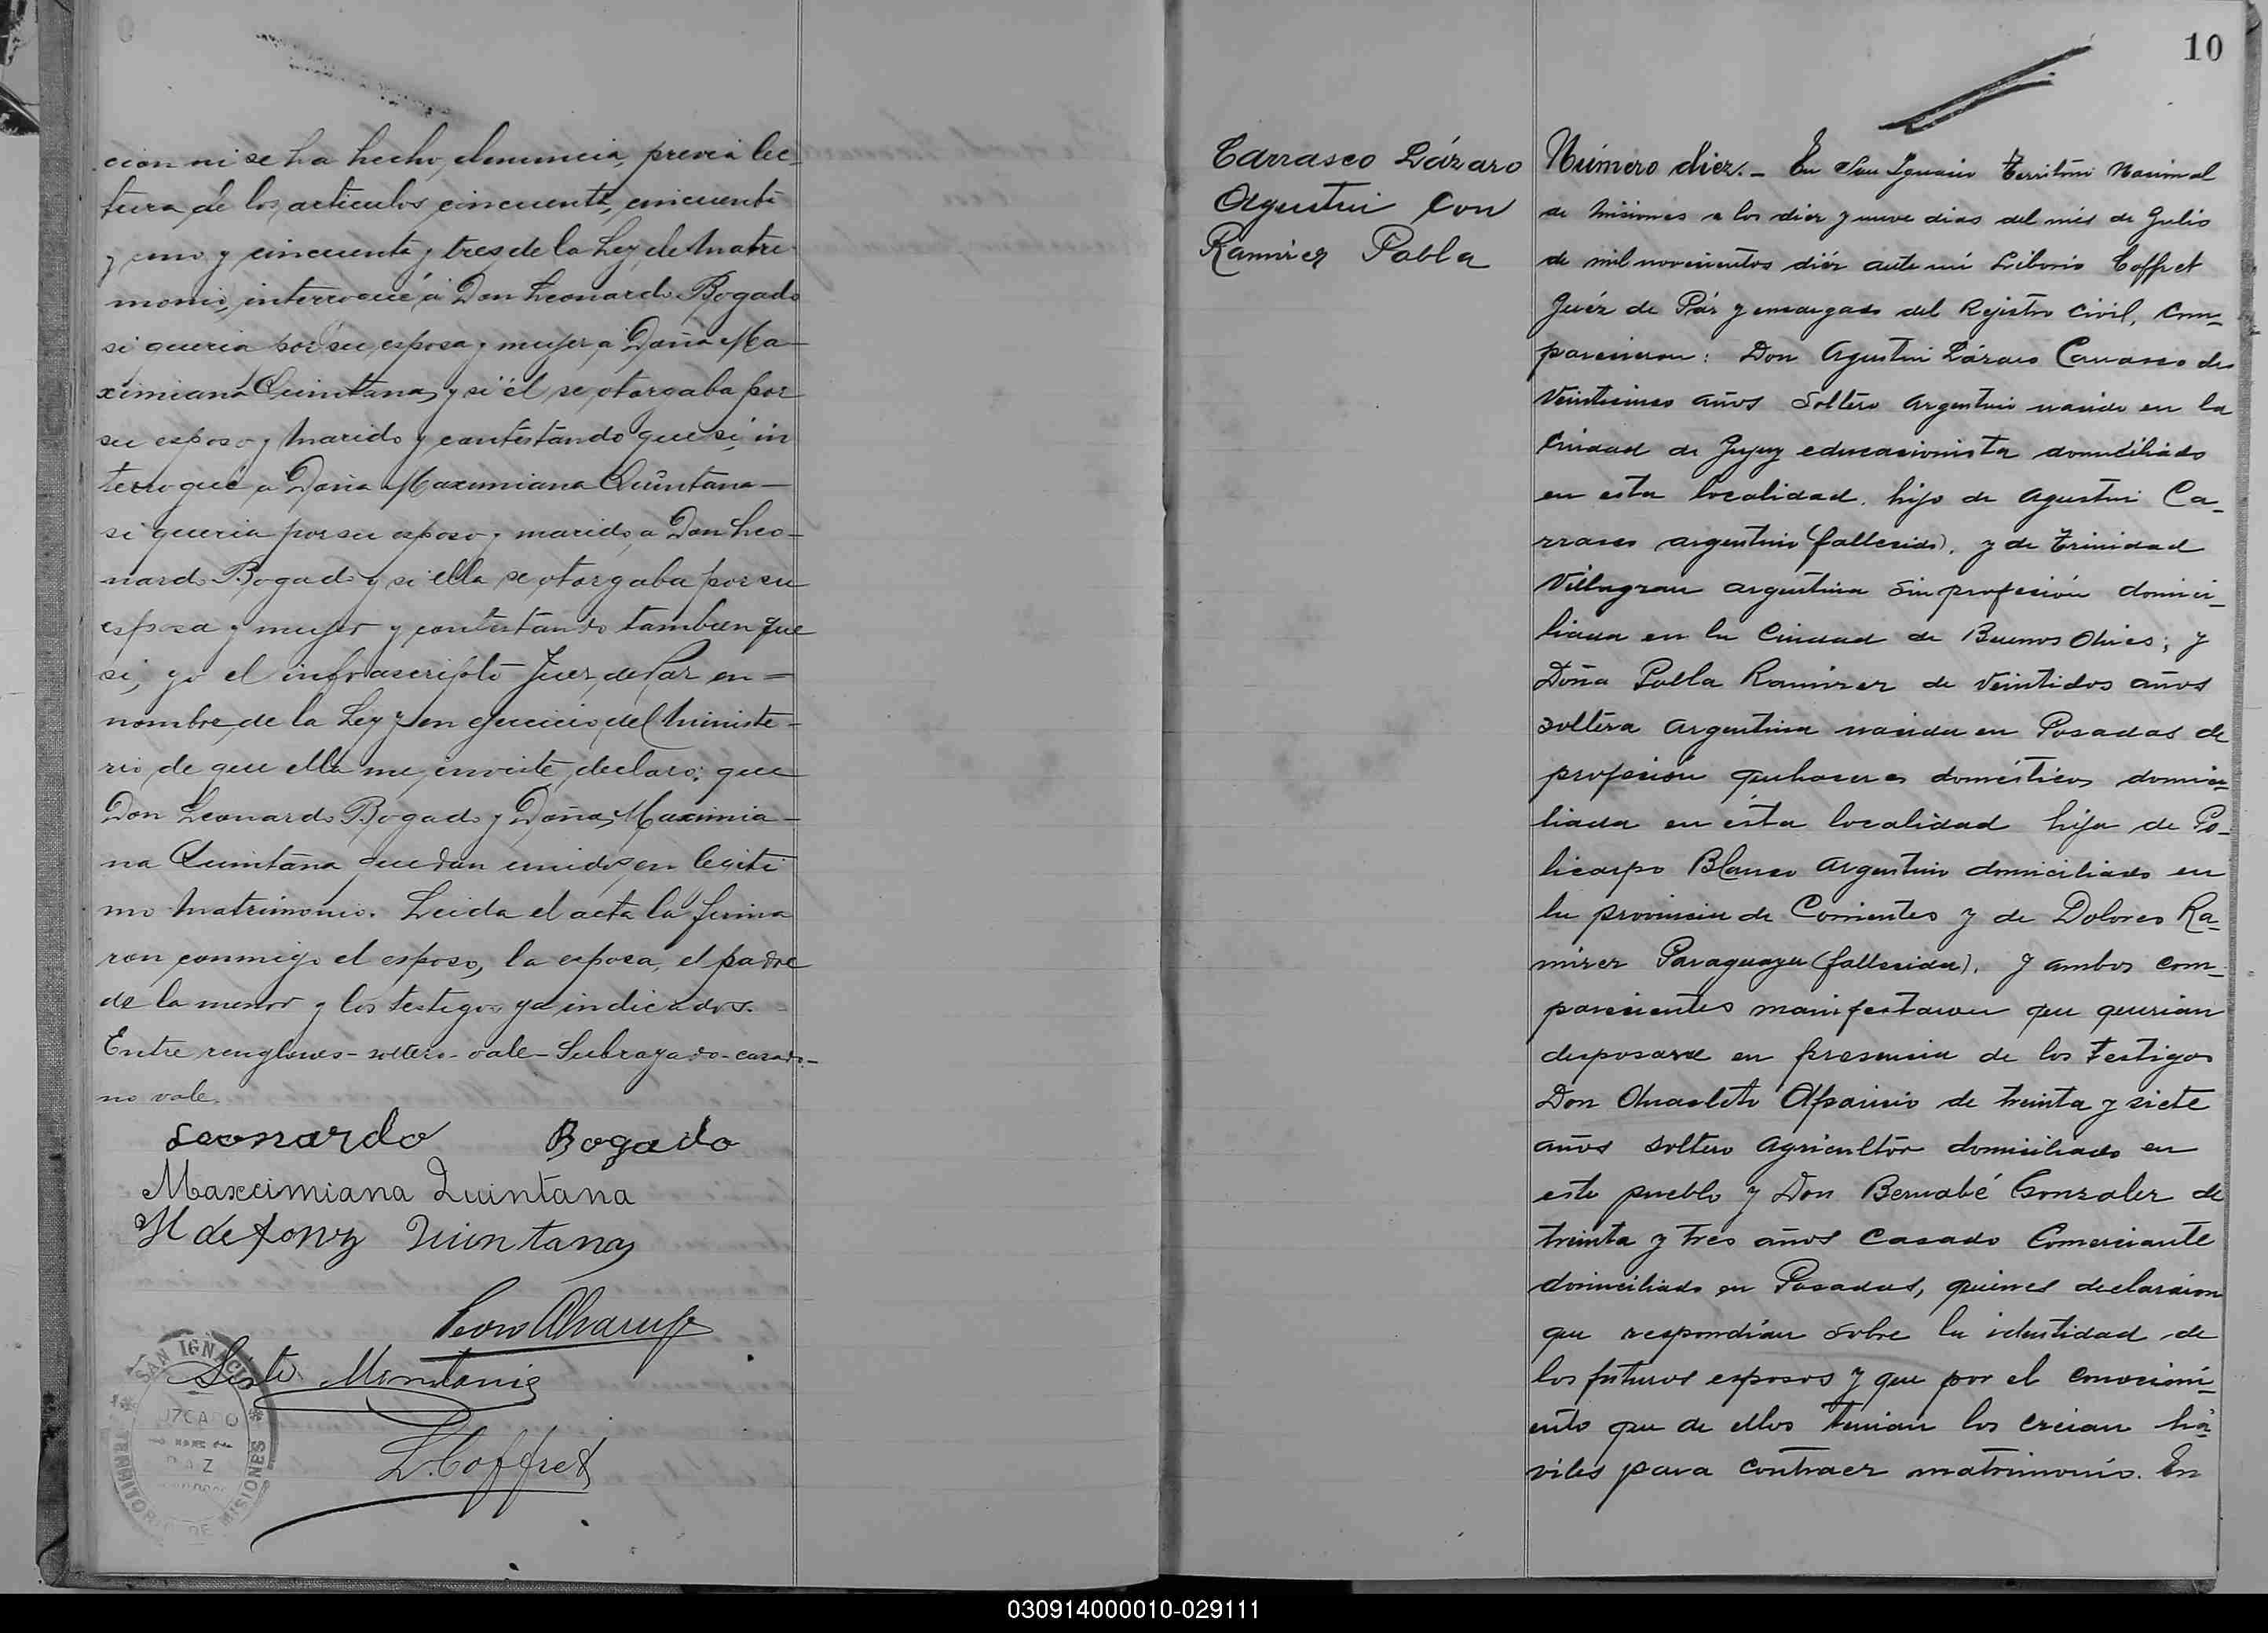 cion ni se ha hecho denuncia, previa lec-
tura de los articulos cincuenta, cincuenta
y uno y cincuenta y tres de la Ley de Matri-
monio, interrogué á Don Leonardo Bogado
si queria por su esposa y mujer á Doña Ma-
ximiana Quintana y si él se otorgaba por
su esposo y marido y contestando que si, in
terrogué a Doña Maximiana Quintana-
si queria por su esposo y marido a Don Leo-
nardo Bogado y si ella se otorgaba por su
esposa y mujer y contestando tambien que
si, yo el infrascripto Juez de Paz en=
nombre de la Ley y en ejercicio del Ministe-
rio de que ella me inviste declaro: que
Don Leonardo Bogado y Doña Maximia-
na Quintana quedan unidos en legiti
mo Matrimonio. Leida el acta la firma
ron conmigo el esposo, la esposa, el padre
de la menor y los testigos ya indicados.
Entre renglones-soltero-vale-Subrayado-casado-
no vale.
Leonardo Bogado
Maxcimiana Quintana
Quintana
L. Coffret
SAN IGNACIO
JUZGADO
DE
PAZ
TERRITORIO DE MISIONES
10
Carrasco Lázaro
Agustin con
Ramirez Pabla
Número diez.- En San Ignacio Territorio Nacional
de Misiones a los diez y nueve dias del més de Julio
de mil novecientos diéz ante mi Liborio Coffret
Juéz de Páz y encargado del Rejistro Civil, Com-
parecieron: Don Agustin Lázaro Carrasco de
Veinticinco años Soltero Argentino nacido en la
Ciudad de Jujuy educacionista domiciliado
en esta localidad. hijo de Agustin Ca-
rrasco argentino (fallecido), y de Trinidad
Villagran argentina Sin profesión domici-
liada en la Ciudad de Buenos Aires; y
Doña Pabla Ramirez de Veintidos años
soltera Argentina nacida en Posadas de
profesión quehaceres domésticos domici-
liada en ésta localidad hija de Po-
licarpo Blanco Argentino domiciliado en
la provincia de Corrientes y de Dolores Ra-
mirez Paraguaya (fallecida). y ambos com-
parecientes manifestaron que querian
desposarse en presencia de los Testigos
Don Anacleto Aparicio de treinta y siete
años soltero Agricultor domiciliado en
este pueblo y Don Bernabé Gonzalez de
treinta y tres años Casado Comerciante
domiciliado en Posadas, quienes declararon
que respondian sobre la identidad de
los futuros esposos y que por el conocimi-
ento que de ellos tenian los creian há-
viles para contraer matrimonio. En
030914000010-029111